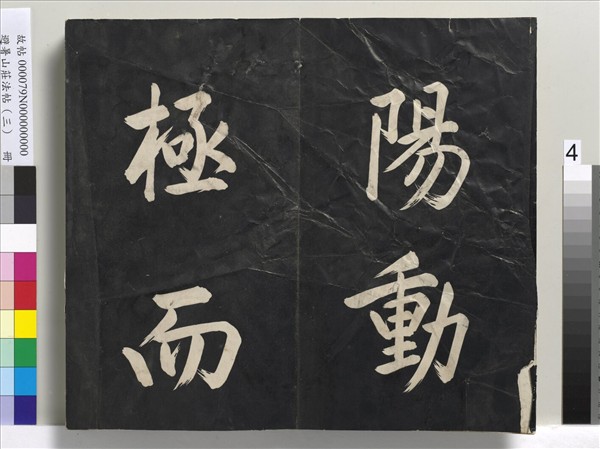 陽動
極而
故帖 000079N000000000
避暑山莊法帖（三） 冊
4